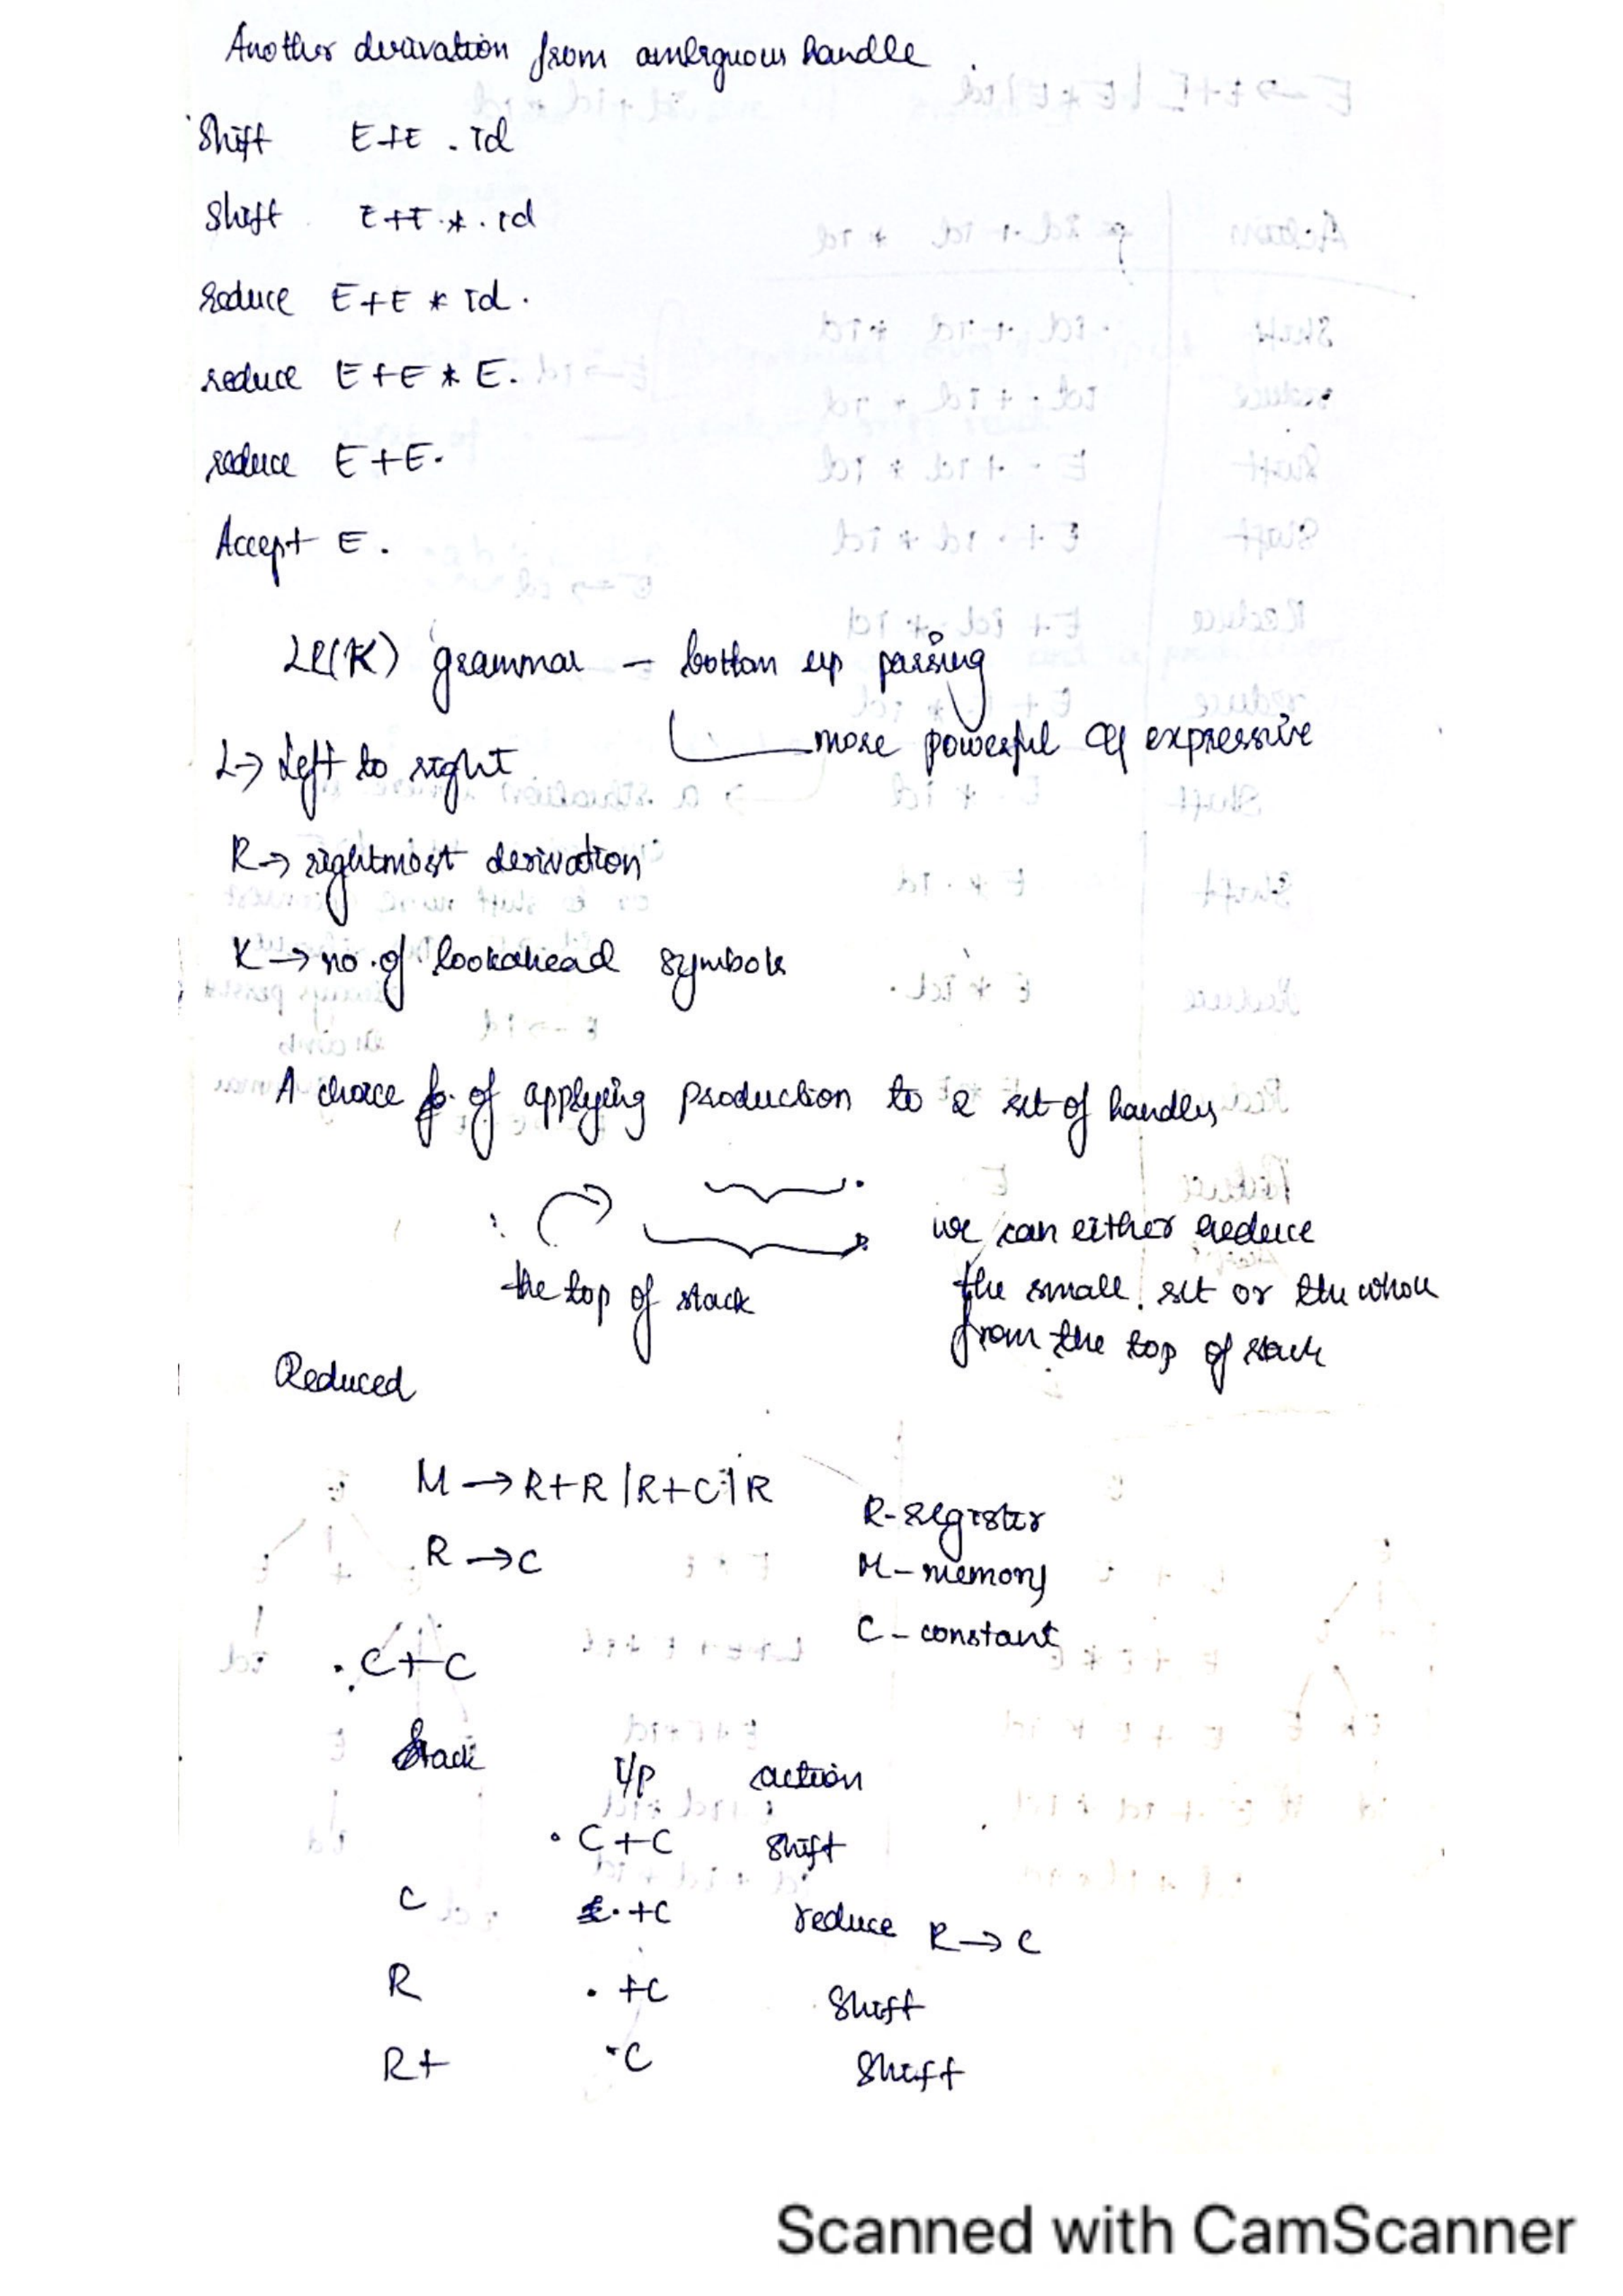 Another derivation from ambiguous handle
Shift E+E . id
Shift E+E * . id
reduce E+E * id .
reduce E+E * E .
reduce E+E .
Accept E .
LR(K) grammar - bottom up parsing
more powerful & expressive
L → Left to right
R → rightmost derivation
K → no. of lookahead symbols
A choice of applying production to a set of handles
we can either reduce
the top of stack
the small set or the whole
from the top of stack
Reduced
M → R+R | R+C | R
R → C
R - register
M - memory
C - constant
. C+C
Stack I/P action
. C+C Shift
C . +C reduce R → C
R . +C Shift
R+ . C Shift
Scanned with CamScanner